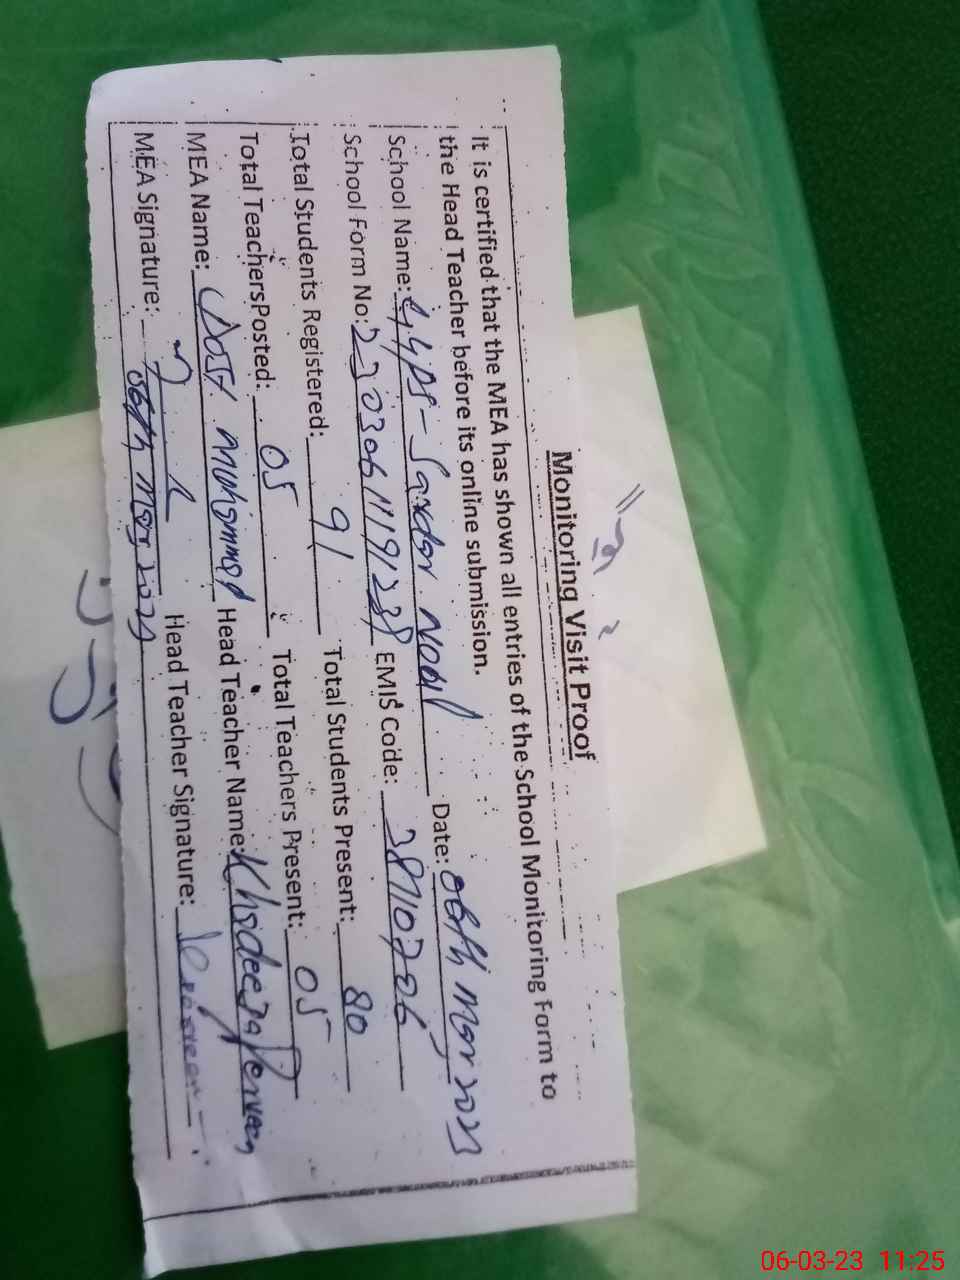 Monitoring Visit Proof
It is certified that the MEA has shown all entries of the School Monitoring Form to
the Head Teacher before its online submission.
School Name: GGPS-Sardar Nabi Date: 06th Mar 2023
School Form No: EMIS Code:
Total Students Registered: 91 Total Students Present: 80
Total TeachersPosted: 05 Total Teachers Present: 05
MEA Name: Dost Mohammad Head Teacher Name: Khadeeja Perveen
MEA Signature: Head Teacher Signature:
06th Mar 2023
06-03-23 11:25